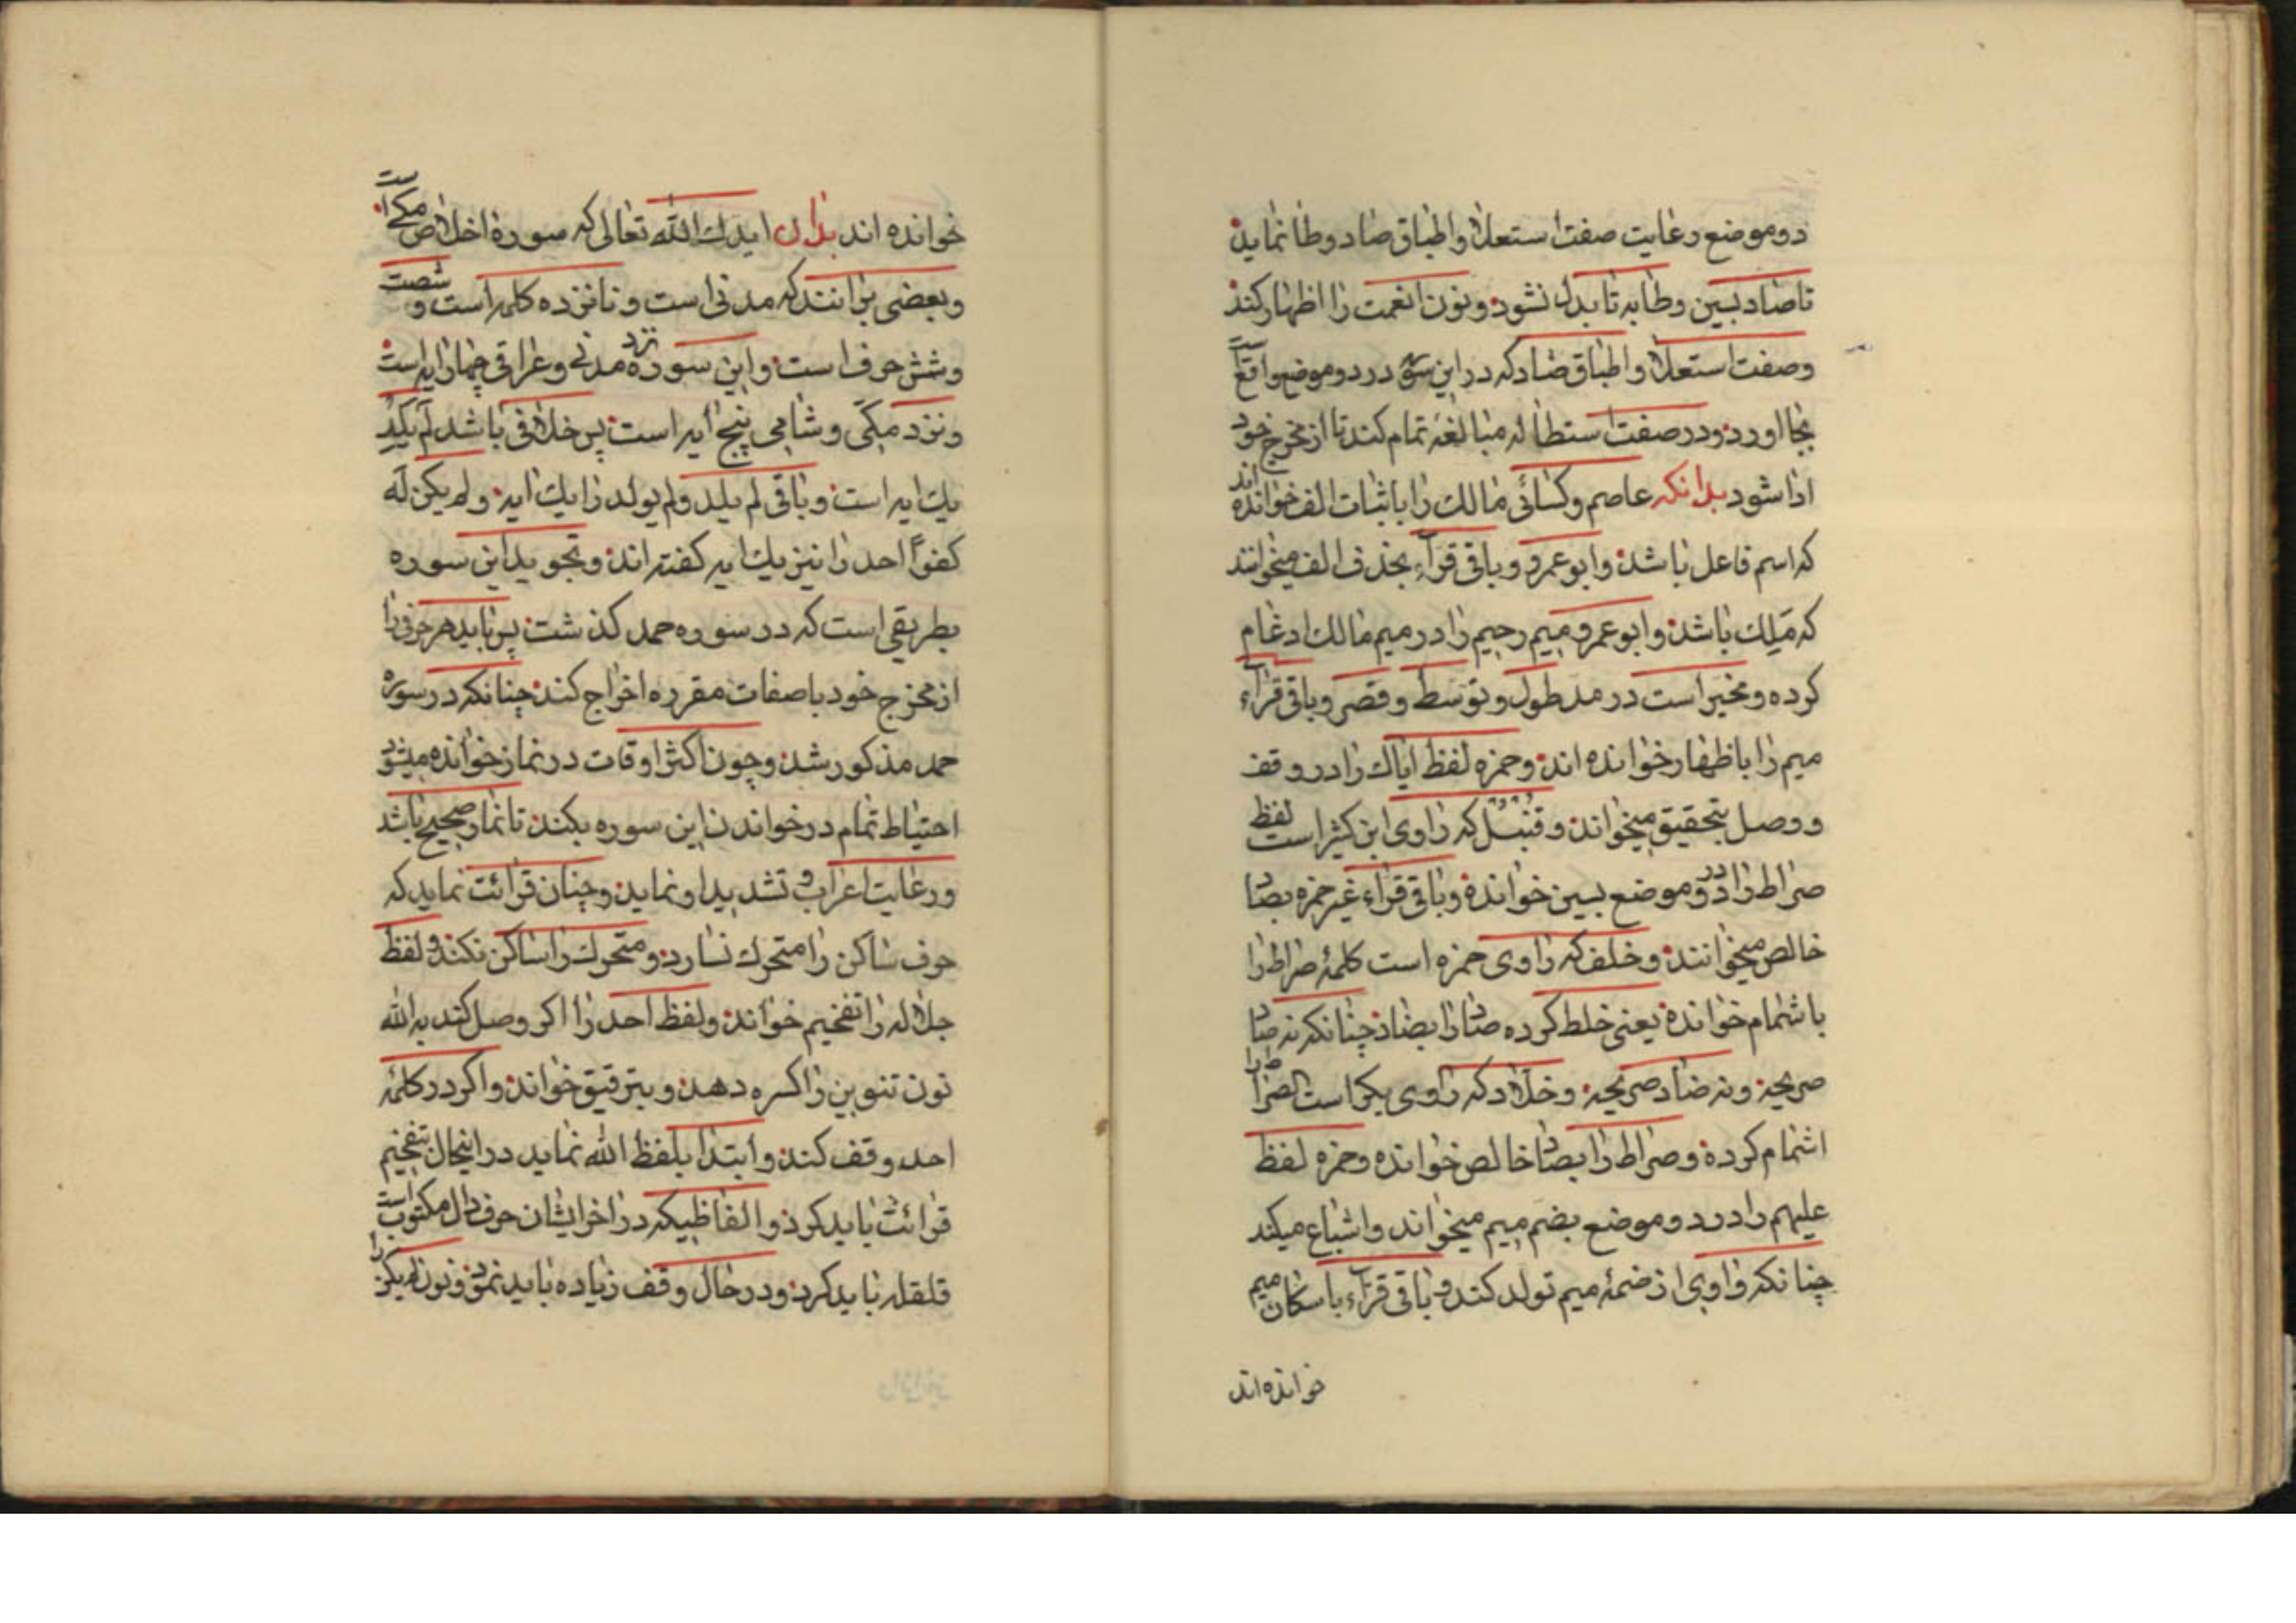 دو موضع رعایت صفت استعلا و اطباق صاد و طا نماید
تا صاد بسین و طا به تا بدل نشود و نون انعمت را اظهار کند
و صفت استعلا و اطباق ضاد که در این سوره در دو موضع واقع است
بجا اورد و در صفت استطاله مبالغه تمام کند تا از مخرج خود
ادا شود بدانکه عاصم و کسائی مالک را باثبات الف خوانده اند
که اسم فاعل باشد و ابو عمرو و باقی قرآء بحذف الف میخوانند
که مَلِک باشد و ابو عمرو میم رحیم را در میم مالک ادغام
کرده و مخیر است در مد طول و توسط و قصر و باقی قرآء
میم را باظهار خوانده اند و حمزه لفظ ایاک را در وقف
و وصل بتحقیق میخواند و قنبل که راوی ابن کثیر است لفظ
صراط را در دو موضع بسین خوانده و باقی قراء غیر حمزه بصاد
خالص میخوانند و خلف که راوی حمزه است کلمهٔ صراط را
باشمام خوانده یعنی خلط کرده صاد را بضاد چنانکه نه صاد
صریحه و نه ضاد صریحه و خلاد که راوی یکر است الصراط را
اشمام کرده و صراط را بصاد خالص خوانده و حمزه لفظ
علیهم را در دو موضع بضم میم میخواند و اشباع میکند
چنانکه واوی از ضمهٔ میم تولد کند و باقی قرآء باسکان میم
خوانده اند
خوانده اند بدان ایدک الله تعالی که سوره اخلاص مکی است
و بعضی برانند که مدنی است و نانزده کلمه است و شصت
و شش حرف است و این سوره نزد مدنی و عراقی چهار ایه است
و نزد مکی و شامی پنج ایه است پس خلافی باشد لَم یَلِد
یک ایه است و باقی لم یلد ولم یولد را یک ایه و لم یکن له
کفوًا احد را نیز یک ایه گفته اند و تجوید این سوره
بطریقی است که در سوره حمد گذشت پس باید هر حرفی را
از مخرج خود با صفات مقرره اخراج کند چنانکه در سوره
حمد مذکور شد و چون اکثر اوقات در نماز خوانده میشود
احتیاط تمام در خواندن این سوره بکند تا نماز صحیح باشد
و رعایت اعراب و تشدید او نماید و چنان قرائت نماید که
حرف ساکن را متحرک نسازد و متحرک را ساکن نکند و لفظ
جلاله را تفخیم خواند و لفظ احد را اگر وصل کند به الله
نون تنوین را کسره دهد و بترقیق خواند و اگر در کلمهٔ
احد وقف کند و ابتدا بلفظ الله نماید در اینحال بتفخیم
قرائت باید کرد و الفاظیکه در اخر ایشان حرف دال مکتوب است
قلقله باید کرد و در حال وقف زیاده باید نمود و نون لم یکن را